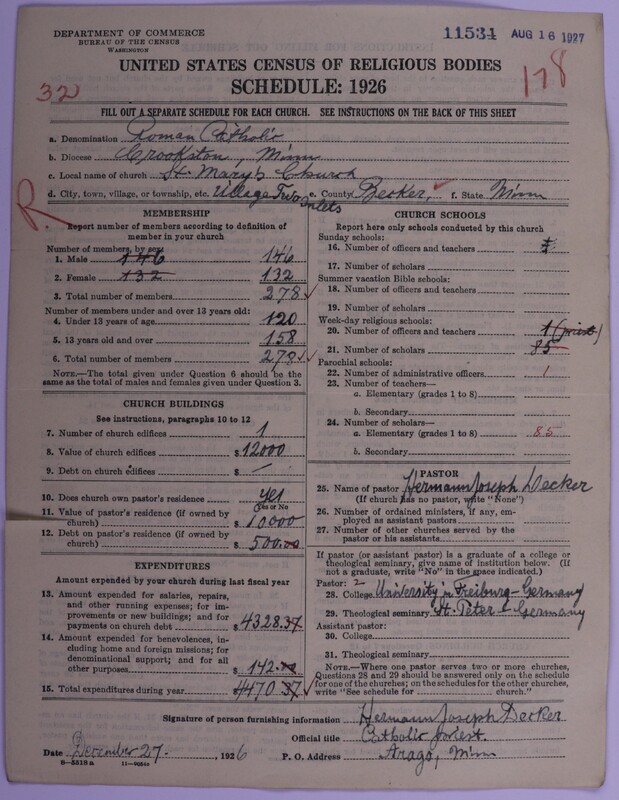 DEPARTMENT OF COMMERCE
BUREAU OF THE CENSUS
WASHINGTON
11534 AUG 16 1927
UNITED STATES CENSUS OF RELIGIOUS BODIES
SCHEDULE: 1926
32
178
FILL OUT A SEPARATE SCHEDULE FOR EACH CHURCH. SEE INSTRUCTIONS ON THE BACK OF THIS SHEET
a. Denomination Roman Catholic
b. Diocese Crookston, Minn
c. Local name of church St. Mary's Church
d. City, town, village, or township, etc. Village Two Inlets e. County Becker, f. State Minn
R
MEMBERSHIP
Report number of members according to definition of
member in your church
Number of members, by sex:
1. Male 146 146
2. Female 132 132
3. Total number of members 278
Number of members under and over 13 years old:
4. Under 13 years of age 120
5. 13 years old and over 158
6. Total number of members 278
NOTE.—The total given under Question 6 should be the
same as the total of males and females given under Question 3.
CHURCH BUILDINGS
See instructions, paragraphs 10 to 12
7. Number of church edifices 1
8. Value of church edifices $ 12000
9. Debt on church edifices $ —
10. Does church own pastor's residence yes
Yes or No
11. Value of pastor's residence (if owned by
church) $ 10000
12. Debt on pastor's residence (if owned by
church) $ 500.00
EXPENDITURES
Amount expended by your church during last fiscal year
13. Amount expended for salaries, repairs,
and other running expenses; for im-
provements or new buildings; and for
payments on church debt $ 4328.37
14. Amount expended for benevolences,
including home and foreign missions; for
denominational support; and for all
other purposes $ 142.00
15. Total expenditures during year $ 4470 37
CHURCH SCHOOLS
Report here only schools conducted by this church
Sunday schools:
16. Number of officers and teachers
17. Number of scholars
Summer vacation Bible schools:
18. Number of officers and teachers
19. Number of scholars
Week-day religious schools:
20. Number of officers and teachers 1 (priest)
21. Number of scholars 85
Parochial schools:
22. Number of administrative officers 1
23. Number of teachers—
a. Elementary (grades 1 to 8)
b. Secondary
24. Number of scholars—
a. Elementary (grades 1 to 8) 85
b. Secondary
PASTOR
25. Name of pastor Hermann Joseph Decker
(If church has no pastor, write "None")
26. Number of ordained ministers, if any, em-
ployed as assistant pastors
27. Number of other churches served by the
pastor or his assistants
If pastor (or assistant pastor) is a graduate of a college or
theological seminary, give name of institution below. (If
not a graduate, write "No" in the space indicated.)
Pastor: 2
28. College University in Freiburg - Germany
29. Theological seminary St. Peter - Germany
Assistant pastor:
30. College
31. Theological seminary
NOTE.—Where one pastor serves two or more churches,
Questions 28 and 29 should be answered only on the schedule
for one of the churches; on the schedules for the other churches,
write "See schedule for church."
Signature of person furnishing information Hermann Joseph Decker
Official title Catholic priest.
Date December 27. 1926 P. O. Address Arago, Minn
8—5518a